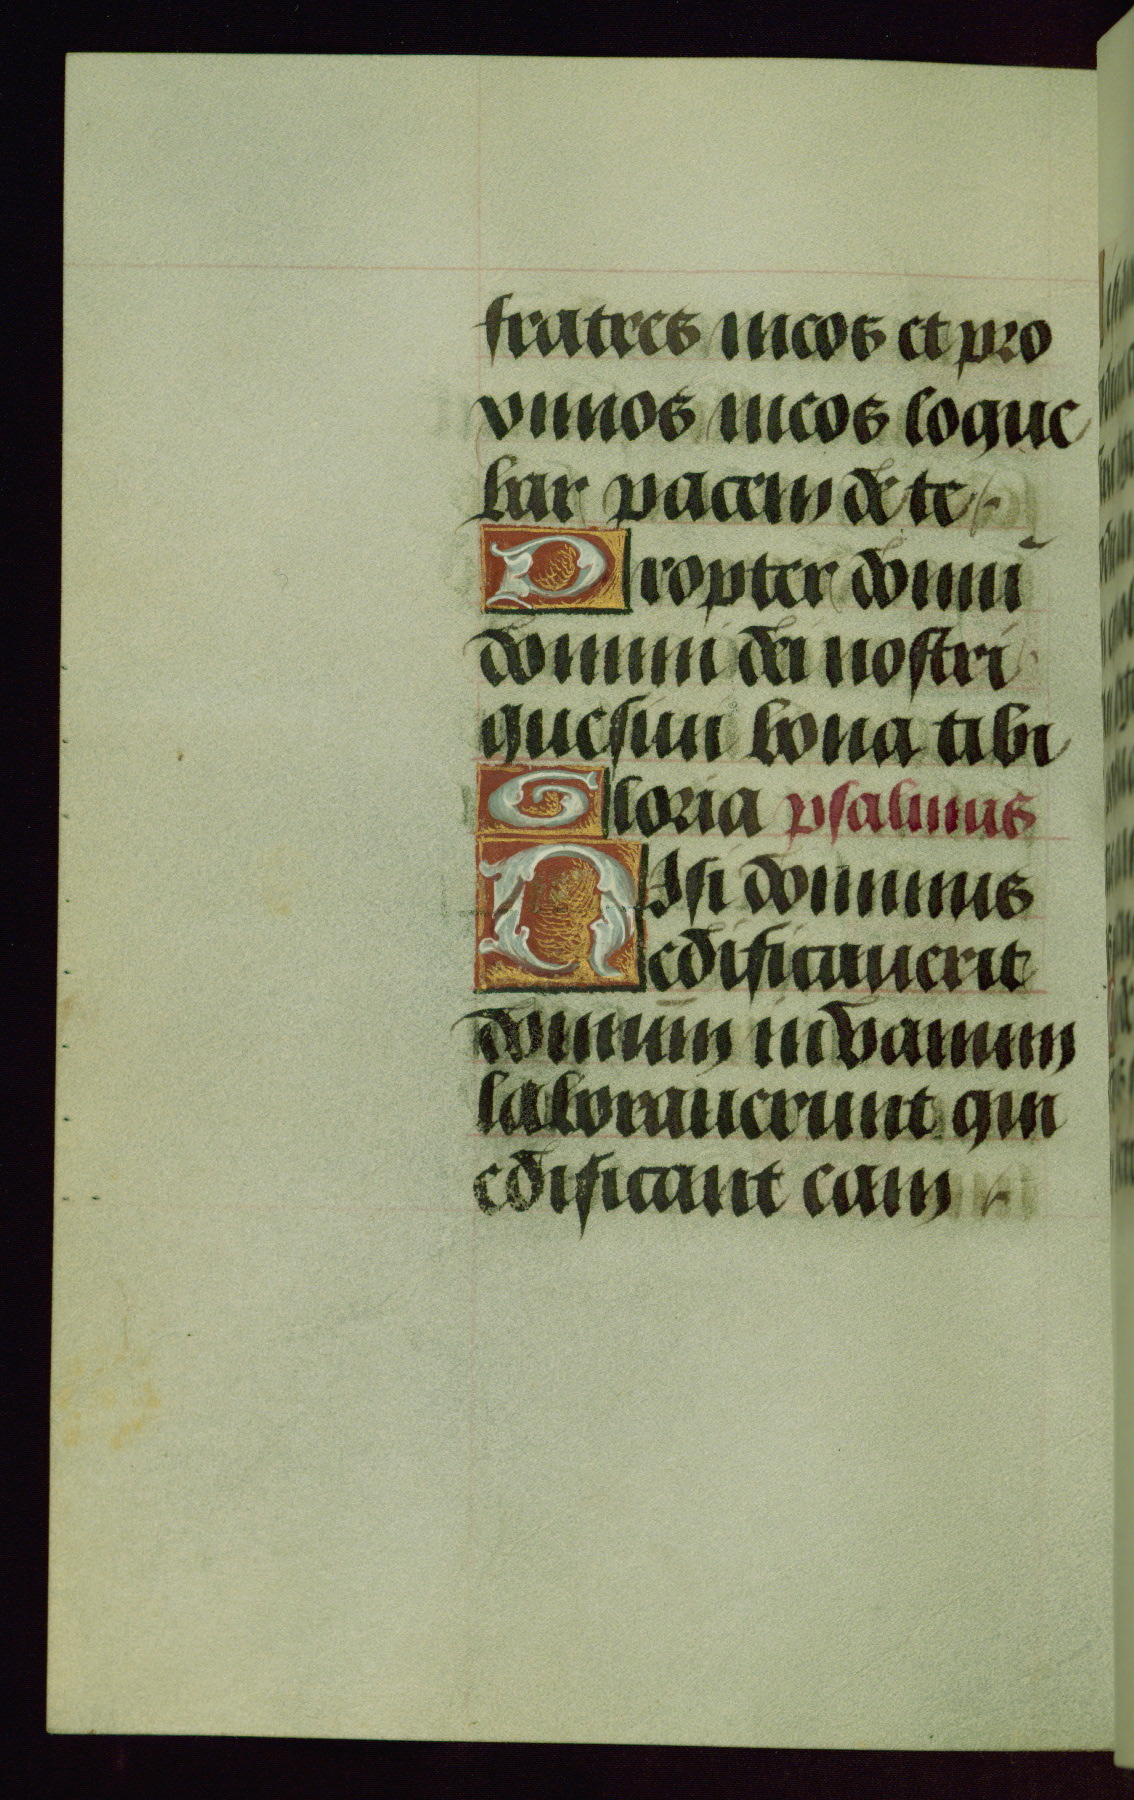 fratres meos et pro
ximos meos loque
bar pacem de te
Propter domū
domini dei nostri
quesiui bona tibi
Gloria psalmus
Nisi dominus
edificauerit
domum in vanum
laborauerunt qui
edificant eam